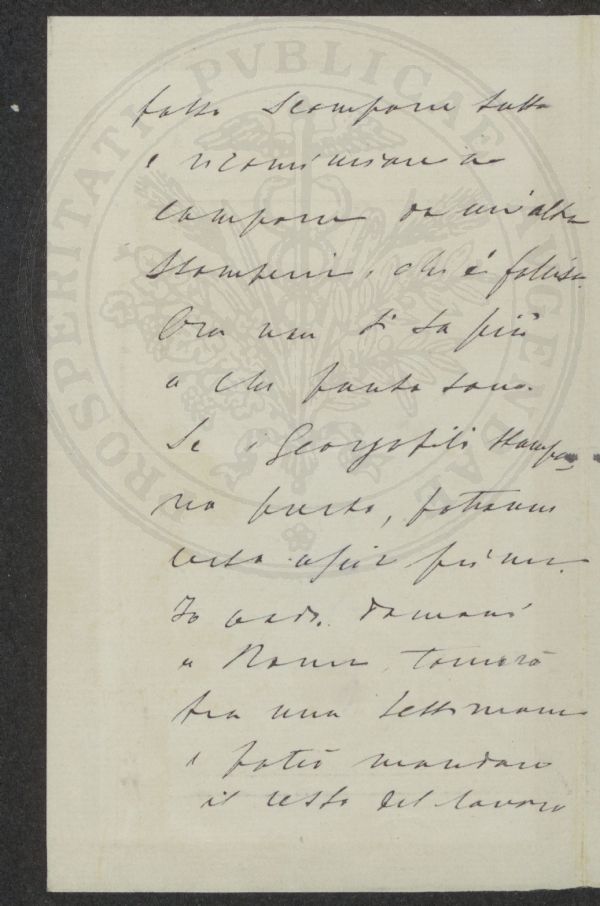 PROSPERITATI PVBLICAE AVGENDAE
fatto scomporre tutto
e ricominciare a
comporre da un'altra
stamperia, che è fallita.
Ora non si sa più
a che punto sono.
Se i Georgofili stampa_
no presto, potranno
certo uscir prima.
Io vado domani
a Roma. Tornerò
fra una settimana
e potrò mandare
il resto del lavoro